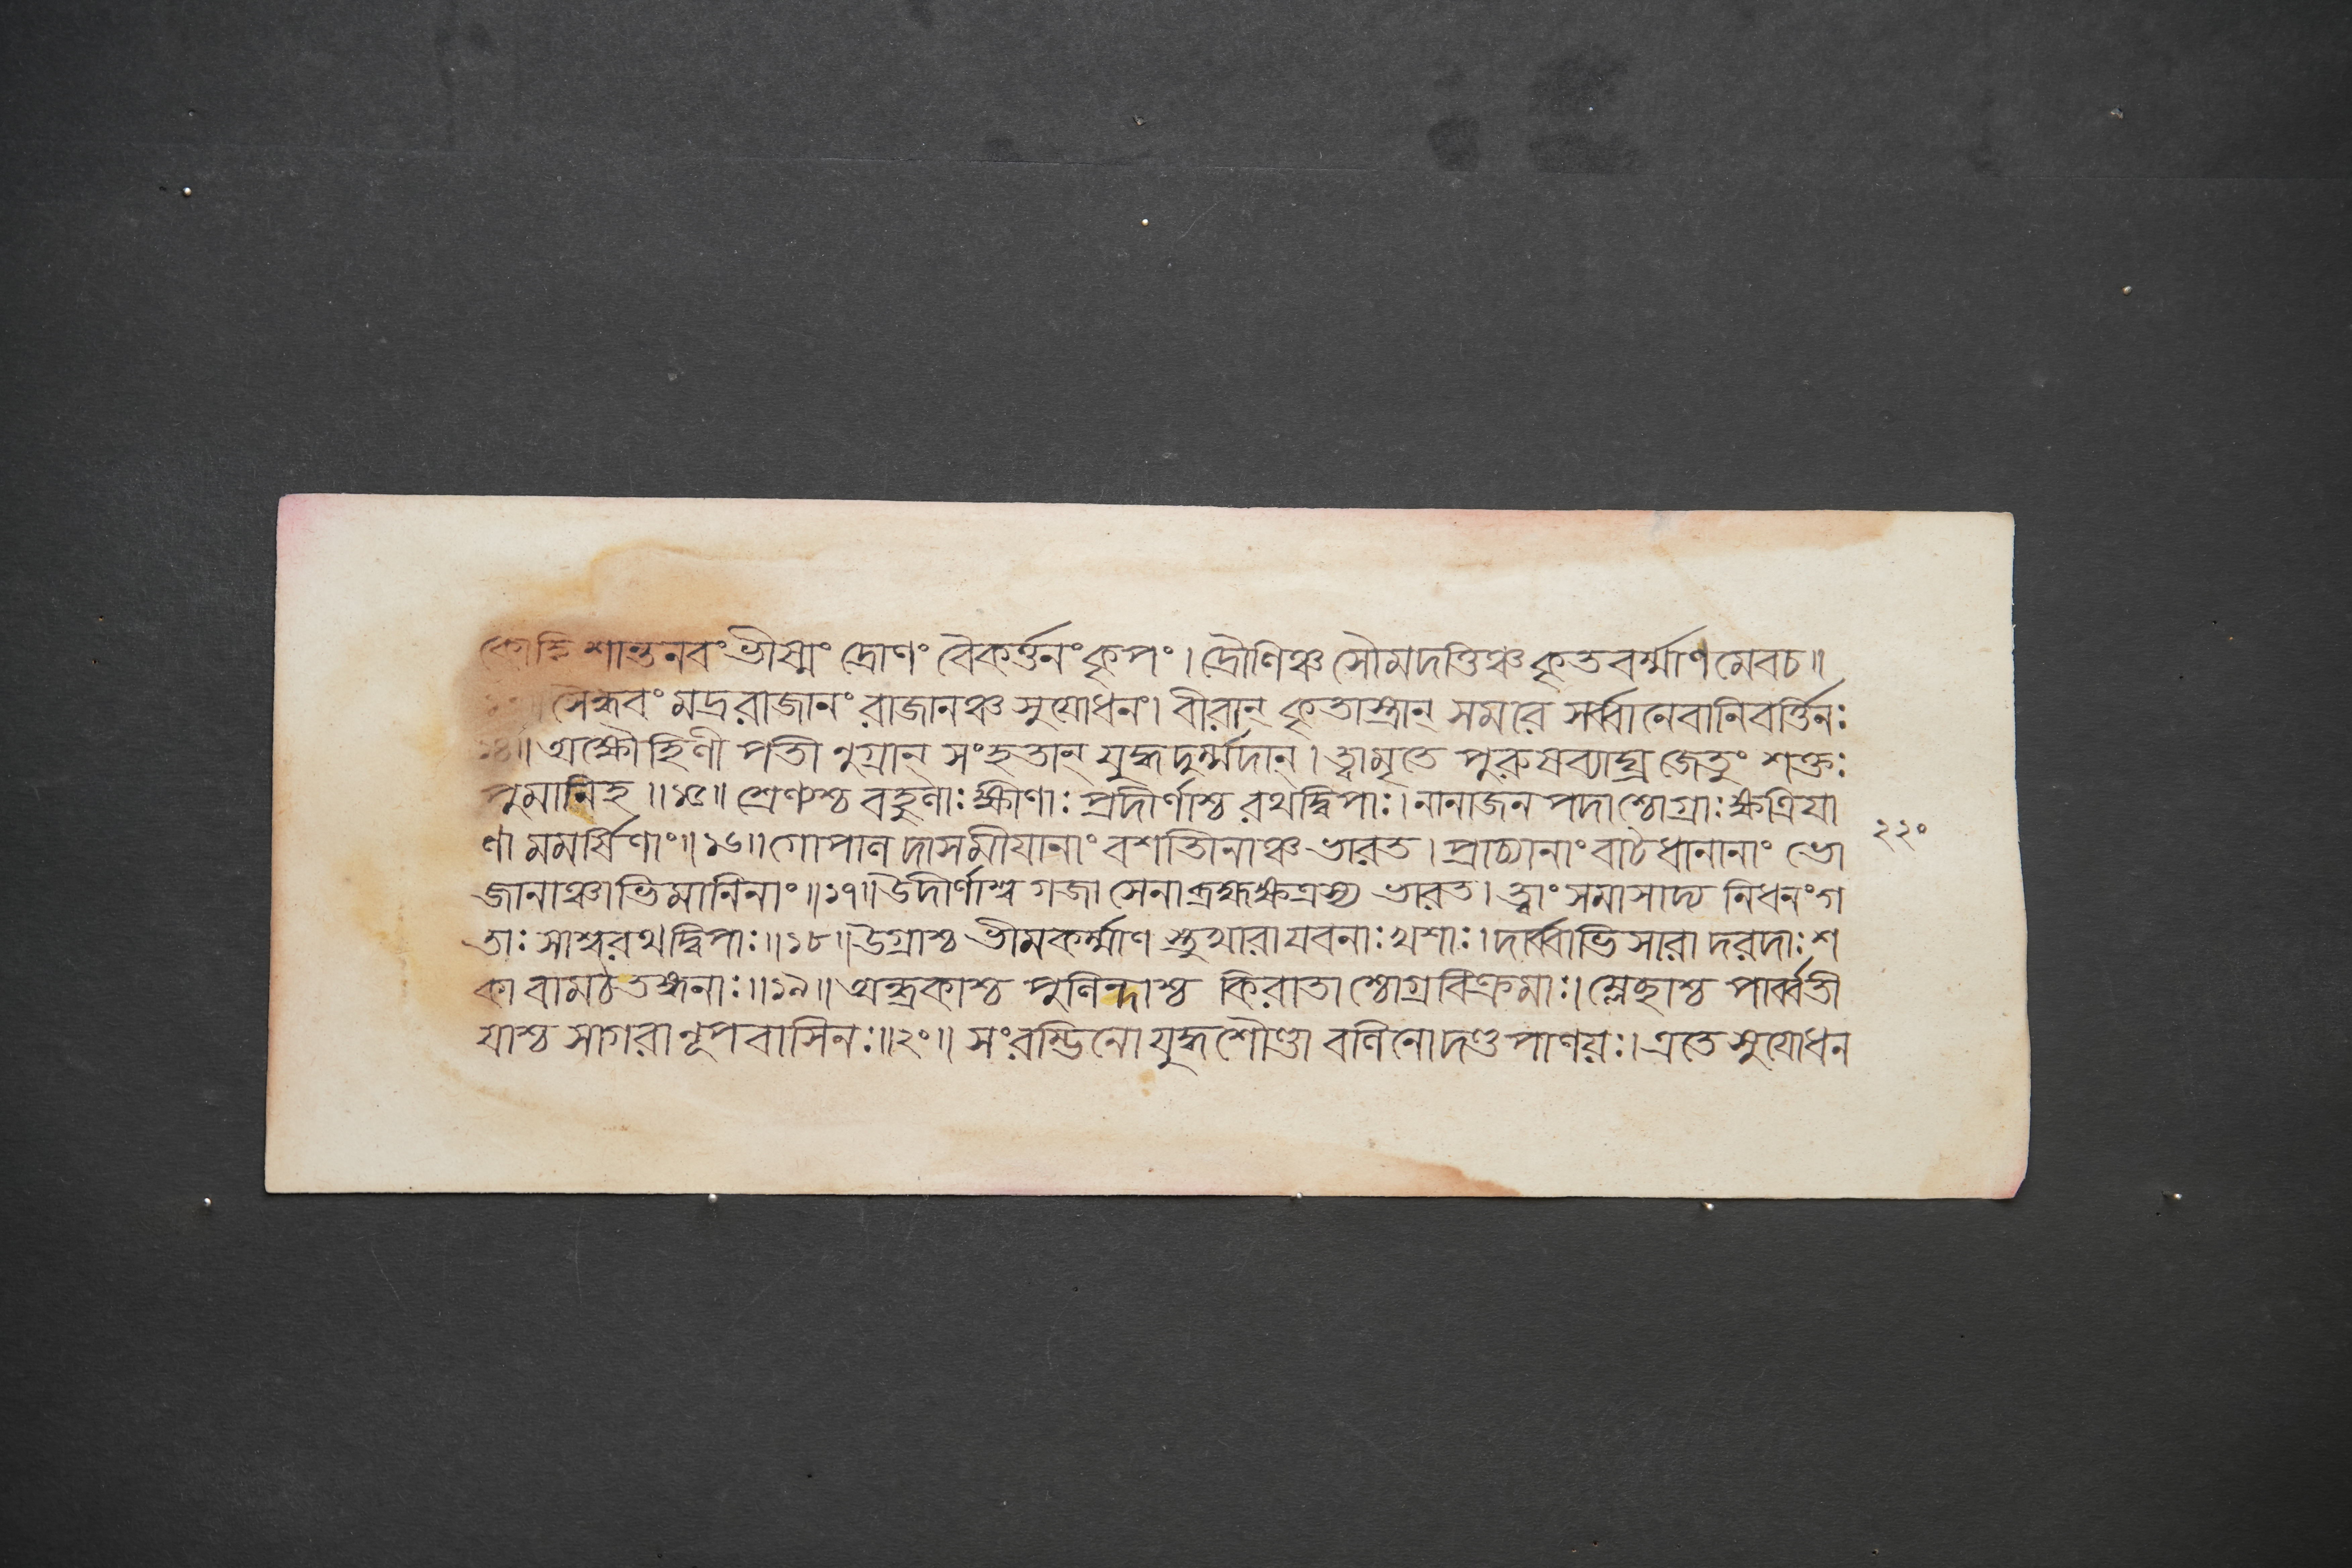 কোহি শান্তনবং ভীষ্মং দ্রোণং বৈকর্ত্তনং কৃপং । দ্রৌণিঞ্চ সৌমদত্তিঞ্চ কৃতবর্ম্মাণমেবচ ॥
সৈন্ধবং মদ্ররাজানং রাজানঞ্চ সুযোধনং । বীরান্ কৃতাস্ত্রান্ সমরে সর্ব্বানেবানিবর্ত্তিনঃ
১৪ ॥ অক্ষৌহিণীপতীণুগ্রান্ সংহতান্ যুদ্ধদুর্ম্মদান্ । ত্বামৃতে পুরুষব্যাঘ্র জেতুং শক্তঃ
পুমানিহ ॥ ১৫ ॥ শ্রেণ্যশ্চ বহুলাঃ ক্ষীণাঃ প্রদীর্ণাশ্চ রথদ্বিপাঃ । নানাজনপদাশ্চোগ্রাঃ ক্ষত্রিয়া
ণামমর্ষিণাং ॥ ১৬ ॥ গোপালদাসমীয়ানাং বশতীনাঞ্চ ভারত । প্রাচ্যানাং বাটধানানাং ভো
জানাঞ্চাভিমানিনাং ॥ ১৭ ॥ উদীর্ণাশ্বগজা সেনা ব্রহ্মক্ষত্রস্য ভারত । ত্বাং সমাসাদ্য নিধনং গ
তাঃ সাশ্বরথদ্বিপাঃ ॥ ১৮ ॥ উগ্রাশ্চ ভীমকর্ম্মাণস্তুখারা যবনাঃ খশাঃ । দার্ব্বাভিসারা দরদাঃ শ
কা বামঠতঙ্গনাঃ ॥ ১৯ ॥ অন্ধ্রকাশ্চ পুলিন্দাশ্চ কিরাতাশ্চোগ্রবিক্রমাঃ । ম্লেছাশ্চ পার্ব্বতী
য়াশ্চ সাগরানূপবাসিনঃ ॥ ২০ ॥ সংরম্ভিনো যুদ্ধশৌণ্ডা বলিনো দণ্ডপাণয়ঃ । এতে সুযোধন
২২০